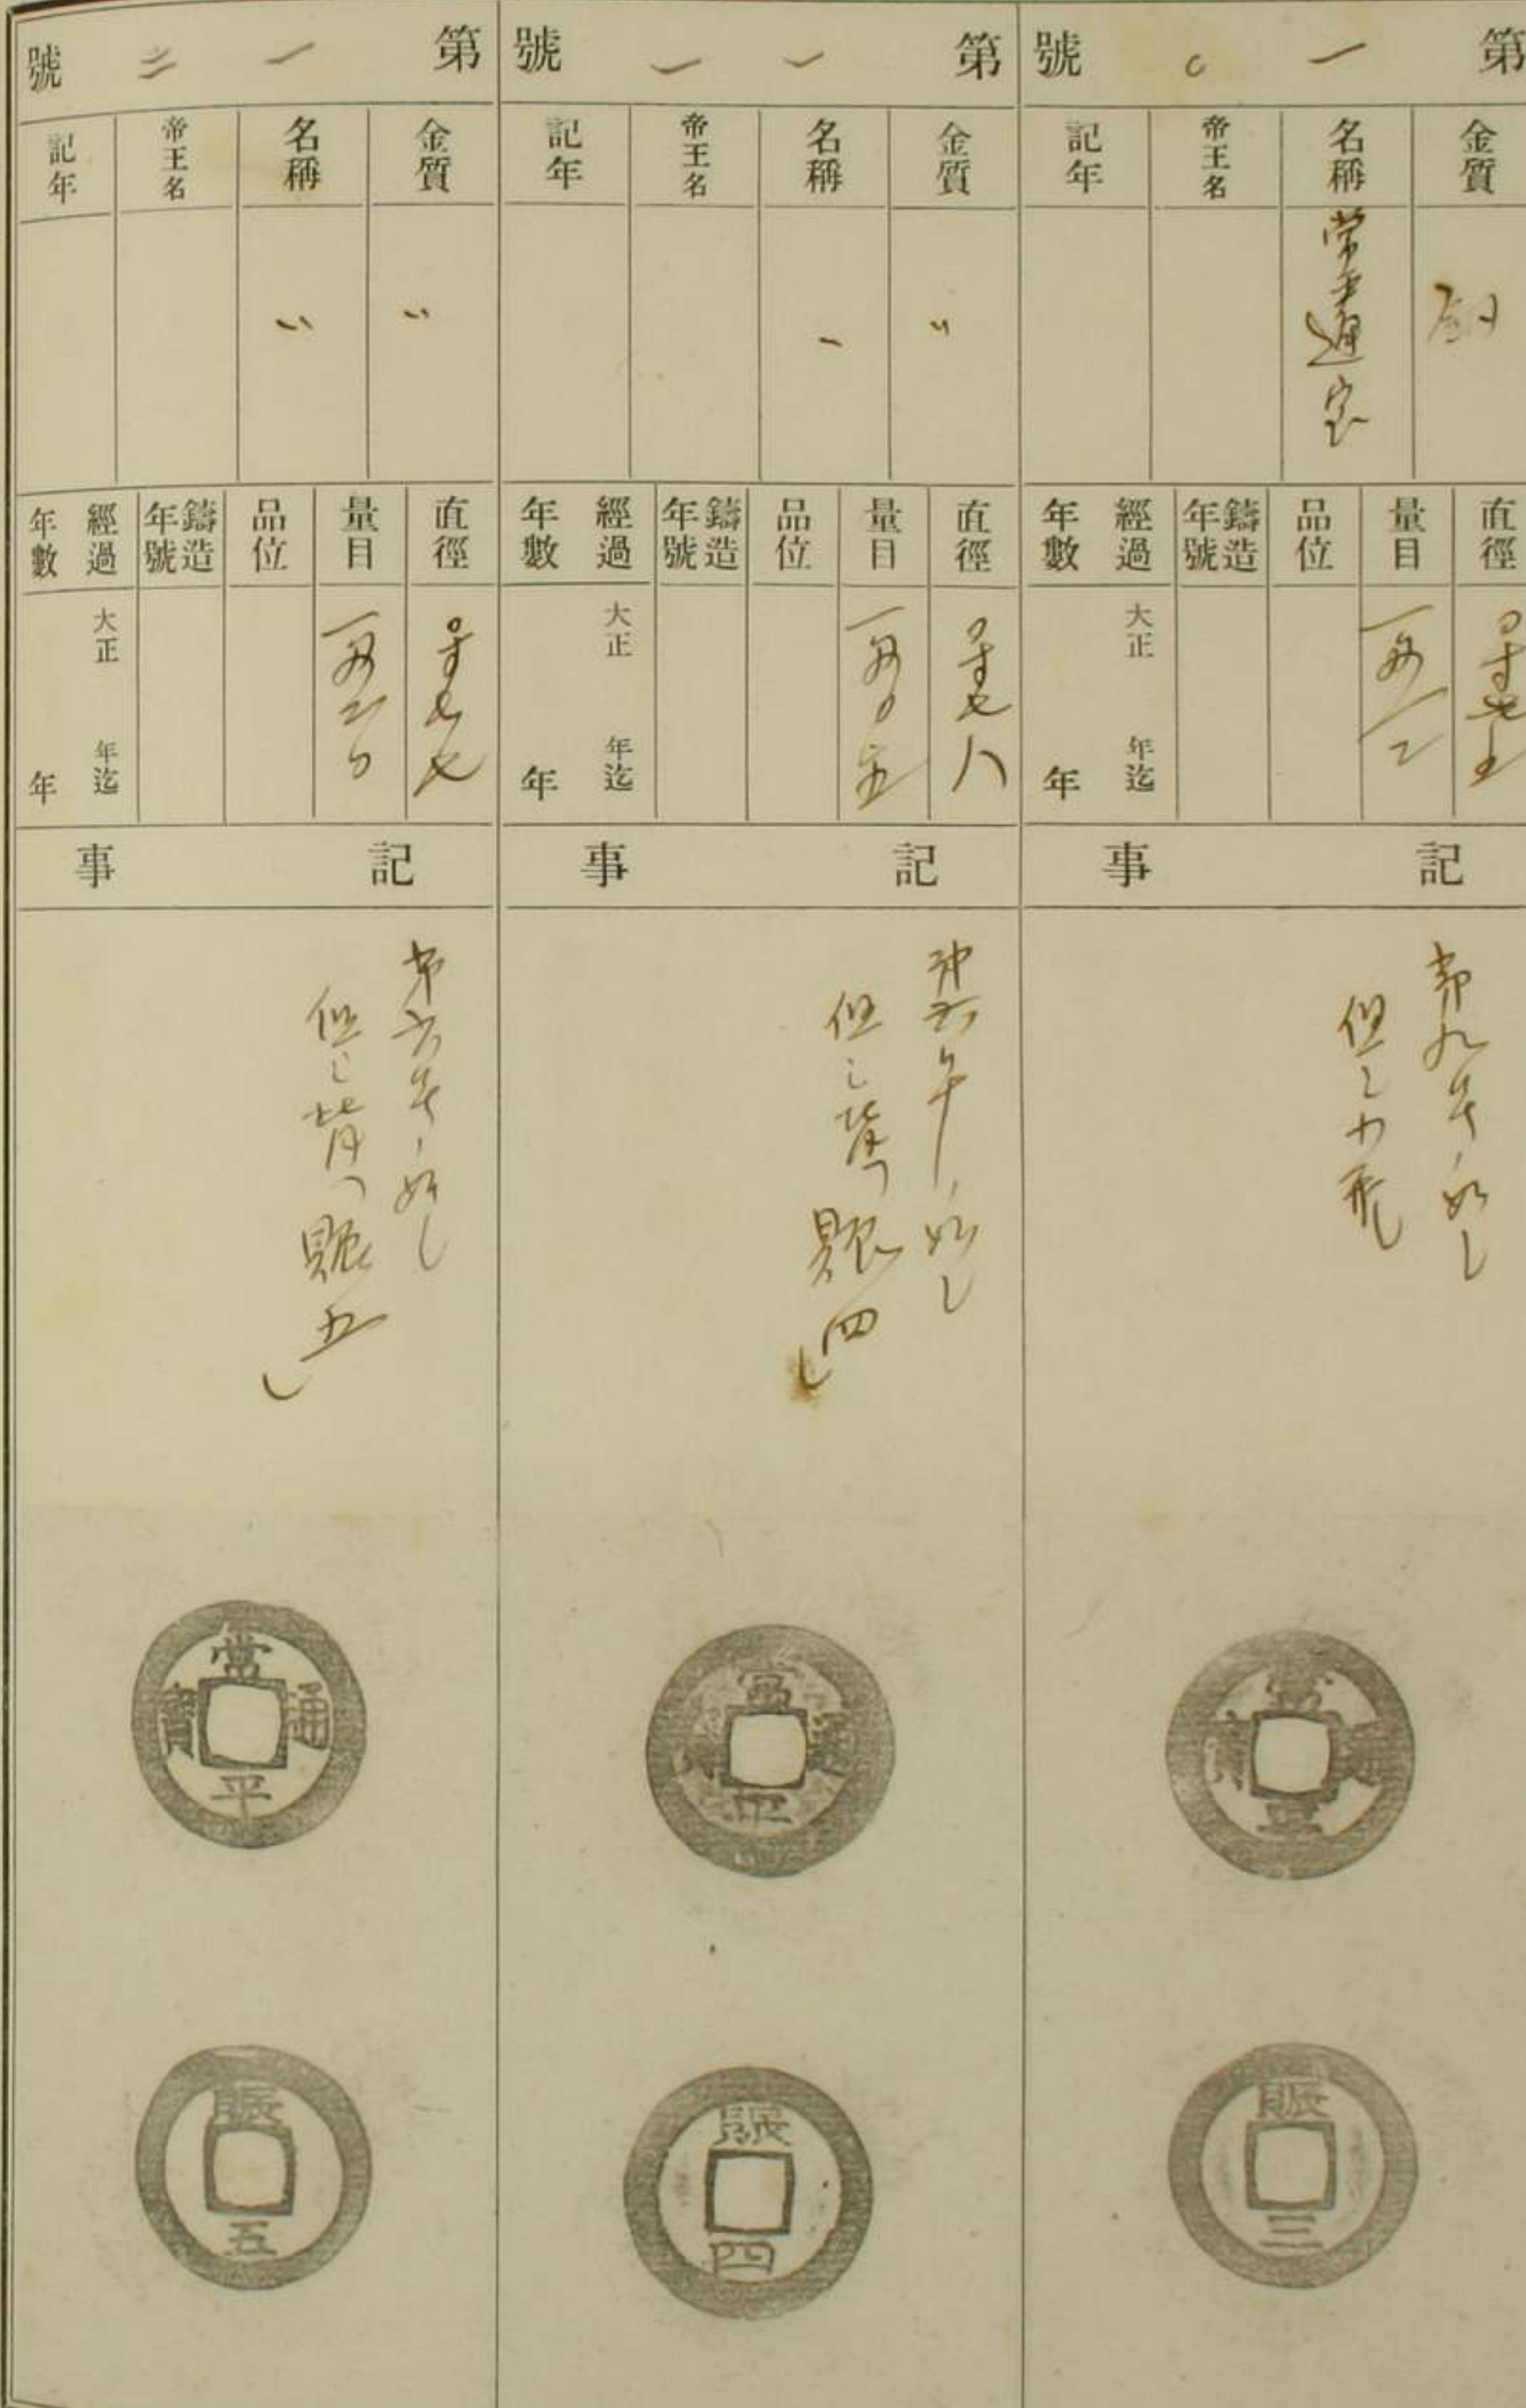 第一〇號
金質 銅
名稱 常平通宝
帝王名
記年
直徑
量目 一匁一二
品位
鑄造年號
經過年數 大正 年迄 年
記事
第九号ノ如し
但し
常平通寶
賑三
第一一號
金質 〃
名稱
帝王名
記年
直徑 〇寸七八
量目 一匁〇五
品位
鑄造年號
經過年數 大正 年迄 年
記事
ノ如し
但し背ニ「賑四」
常平通寶
賑四
第一二號
金質 〃
名稱 〃
帝王名
記年
直徑 〇寸七七
量目 一匁二〇
品位
鑄造年號
經過年數 大正 年迄 年
記事
第六号ノ如し
但し背ニ「賑五」
常平通寶
賑五